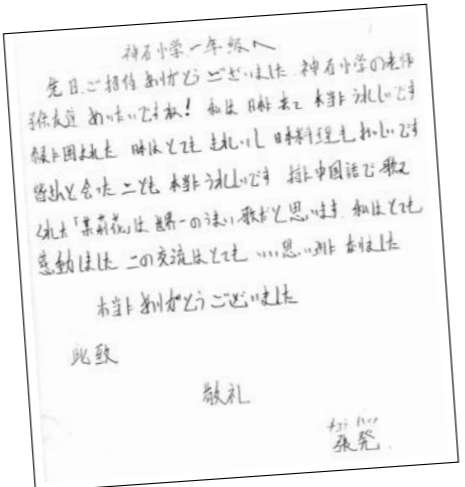 神石小学一年級へ
先日、ご招待ありがとうございました 神石小学の老師
孫友達 あいたいですね! 私は 日本に来て 本当に うれしいです
緑に囲まれた 日本はとても きれいし 日本料理も おいしいです
皆さんと会ったことも 本当に うれしいです 特に中国語で歌って
くれた「茉莉花」は 世界一のうまい歌だと思います 私はとても
感動しました この交流はとても いい思い出に なりました
本当に ありがとうございました
此致
敬礼
張発